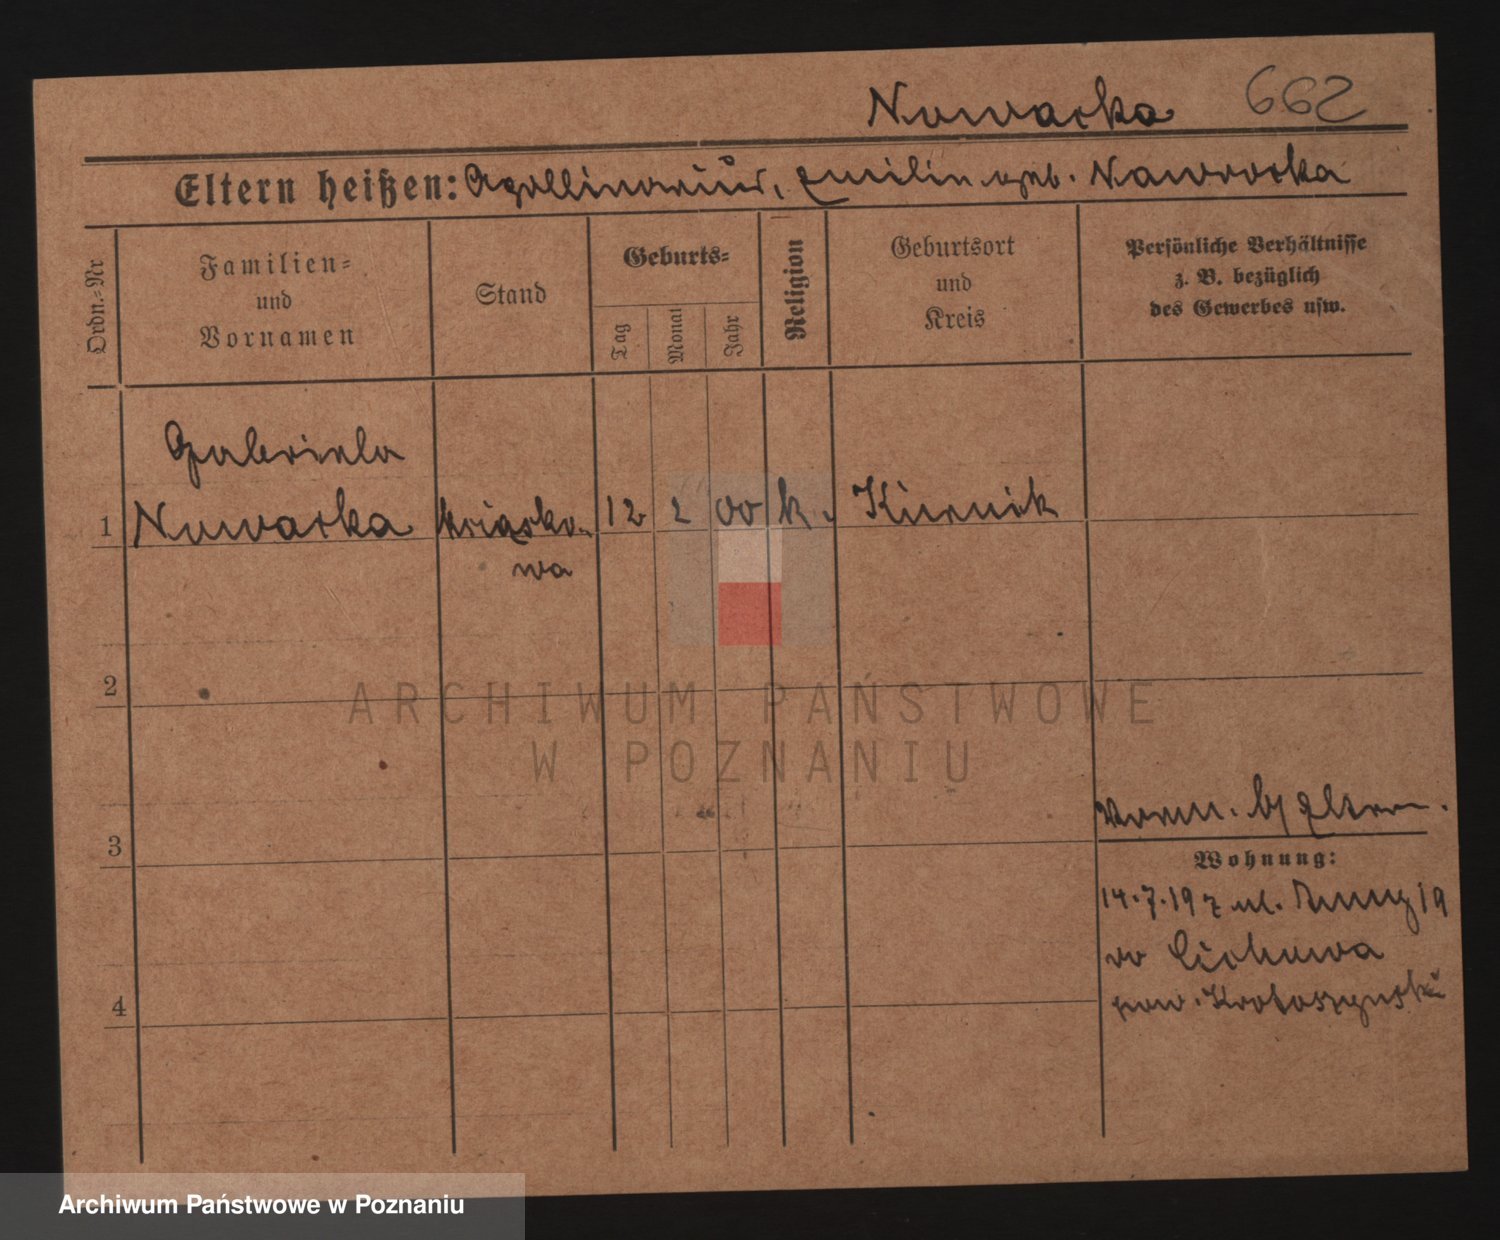 Nowacka 662
Eltern heißen: Apollinarius, Emilia geb. Nawrocka
Ordn.-Nr
Familien-
und
Vornamen
Stand
Geburts-
Tag
Monat
Jahr
Religion
Geburtsort
und
Kreis
Persönliche Verhältnisse
z. B. bezüglich
des Gewerbes usw.
Gabriela
1 Nowacka książko- 12 2 00 k. Kurnik
wa
2
ARCHIWUM PAŃSTWOWE
W POZNANIU
3
Vorm. b/ Eltern.
Wohnung:
14.7.19 z ul. 19
4
pow. Krotoszyński
Archiwum Państwowe w Poznaniu